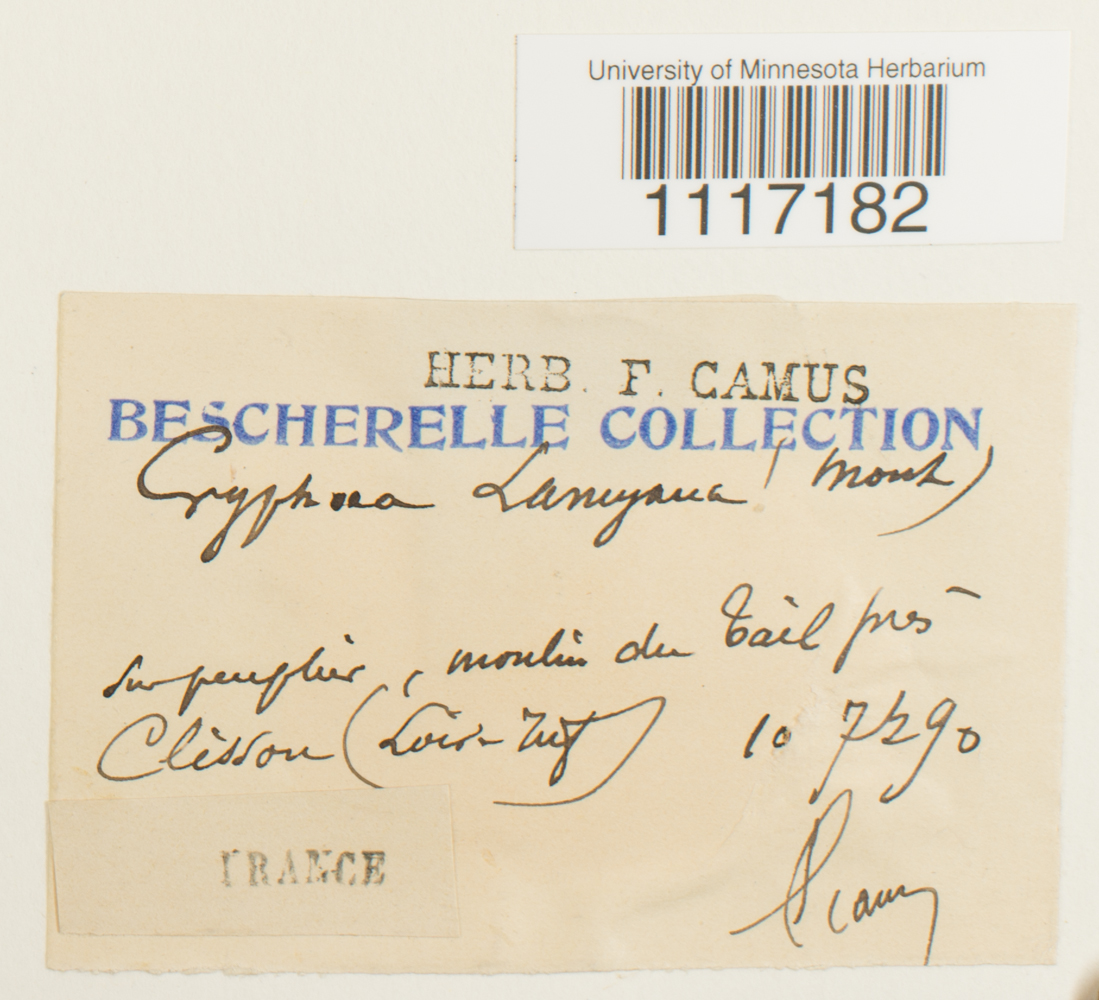 University of Minnesota Herbarium
1117182
HERB. F. CAMUS
BESCHERELLE COLLECTION
Cryphaea Lamyana (Mont)
sur peuplier, moulin du Tail près
Clisson (Loire-Inf) 10 7bre 90
F Camus
FRANCE